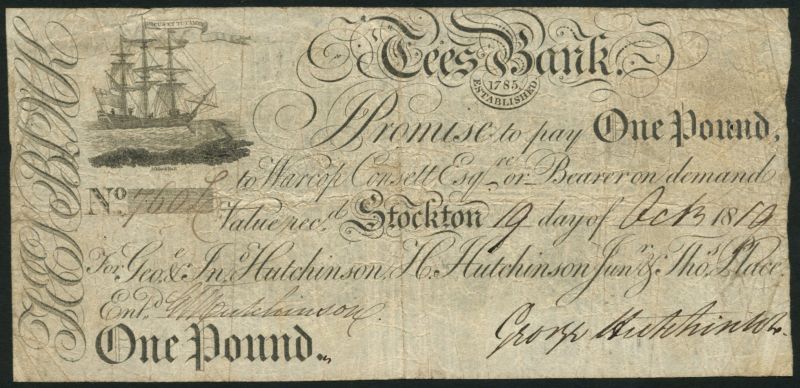 Tees Bank.
1785
ESTABLISHED
I Promise to pay One Pound,
to Warcop Consett Esqre. or Bearer on demand
No
Value recd. Stockton 19 day of Octr 1819
For Geo. & Jno. Hutchinson, H. Hutchinson Junr. & Thos. Place
Entd. G Hutchinson
One Pound.
George Hutchinson
TEES BANK